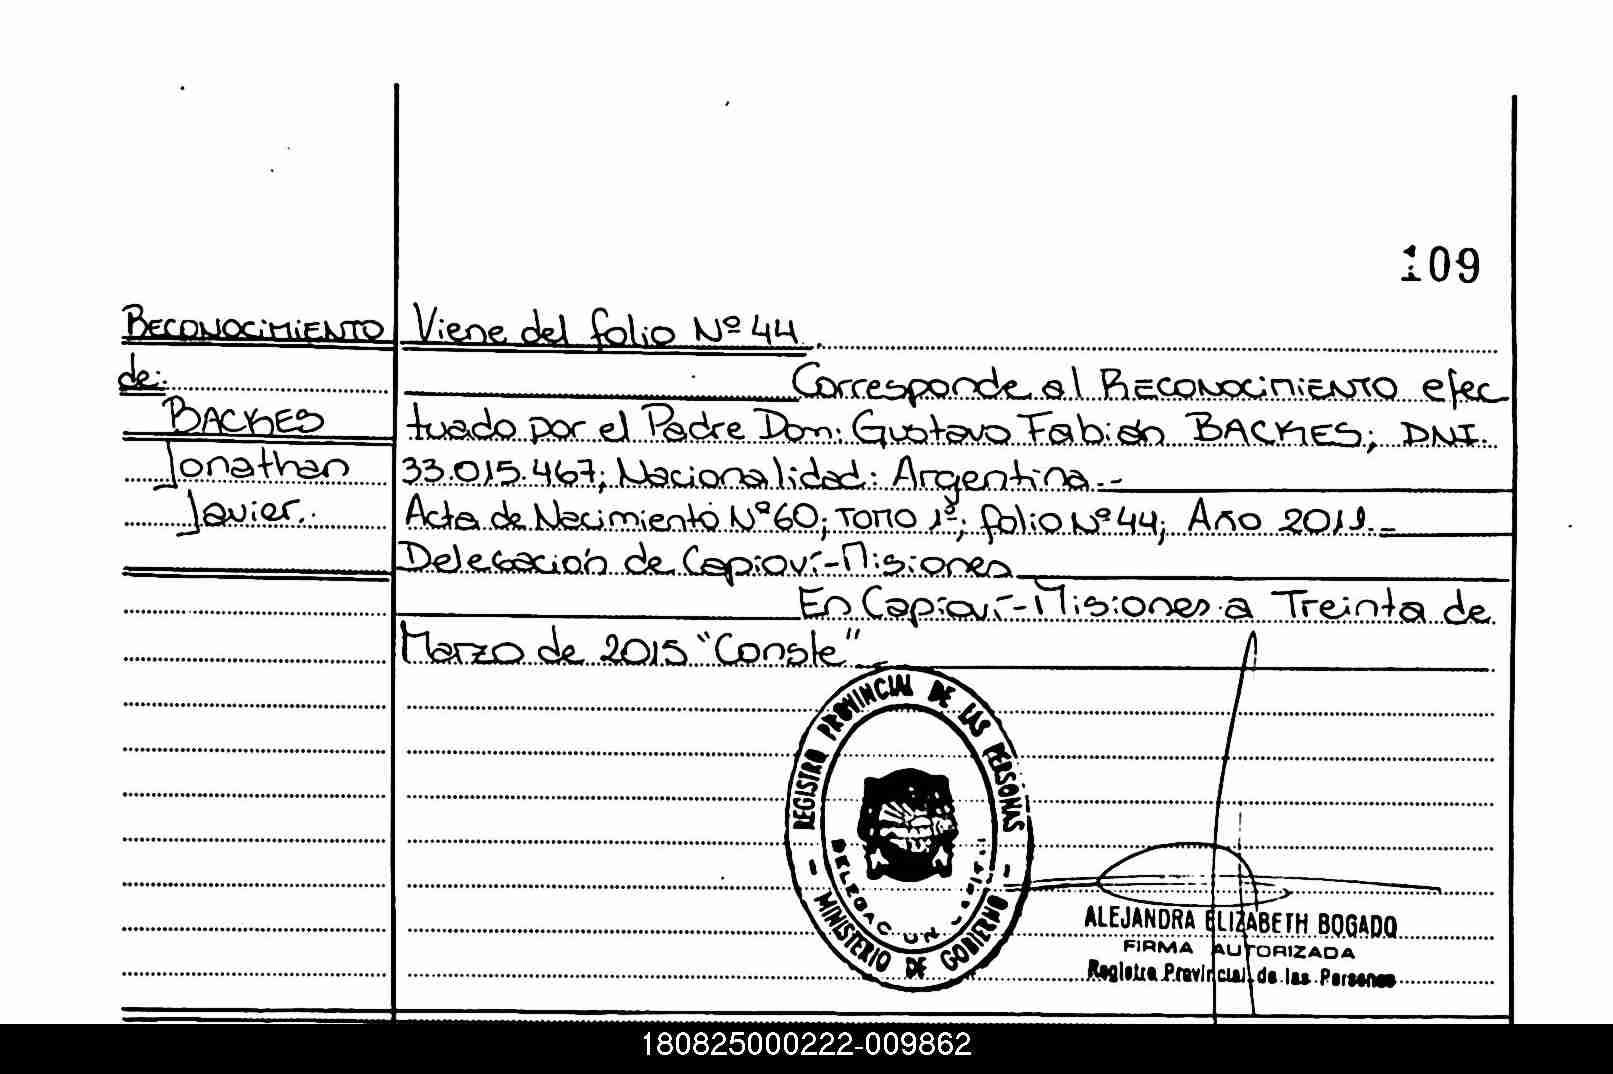 109
RECONOCIMIENTO
de:
BACKES
Jonathan
Javier.
Viene del folio Nº 44.
Corresponde al RECONOCIMIENTO efec
tuado por el Padre Don: Gustavo Fabián BACKES; DNI.
33.015.467; Nacionalidad: Argentina.-
Acta de Nacimiento Nº 60; TOMO 1º; folio Nº 44; Año 2011.-
Delegación de Capioví-Misiones
En Capioví-Misiones a Treinta de
Marzo de 2015 "Conste"
REGISTRO PROVINCIAL DE LAS PERSONAS
- MINISTERIO DE GOBIERNO -
ALEJANDRA ELIZABETH BOGADO
FIRMA AUTORIZADA
Registro Provincial de las Personas
180825000222-009862